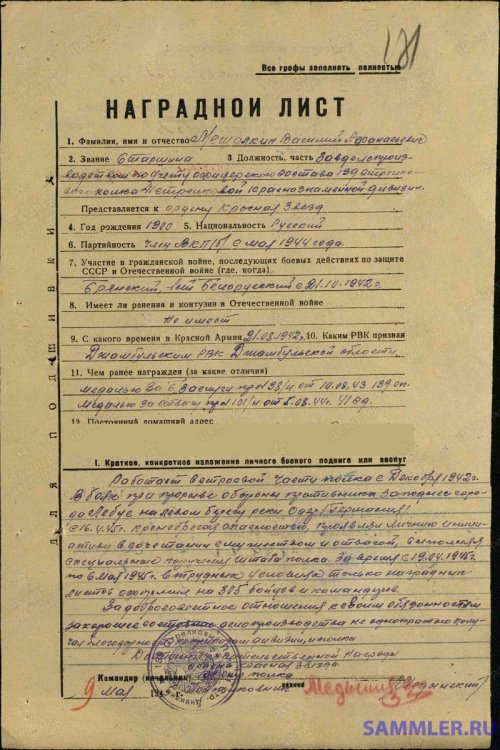 181
Все графы заполнять полностью
НАГРАДНОЙ ЛИСТ
1. Фамилия, имя и отчество Василий Афанасьевич
2. Звание Старшина 3 Должность, часть Завделопроиз-
водством по учету офицерского состава 139 стрелко-
вого полка 41 стрелковой Краснознаменной дивизии.
Представляется к ордену Красная Звезда
4. Год рождения 1900 5. Национальность Русский
6. Партийность член ВКП(б) с мая 1944 года.
7. Участие в гражданской войне, последующих боевых действиях по защите
СССР и Отечественной войне (где, когда)
Брянский, 1ый Белорусский с 21.10.1942г.
8. Имеет ли ранения и контузии в Отечественной войне
Не имеет
9. С какого времени в Красной Армии 21.08.1942г. 10. Каким РВК призван
Джамбульским РВК Джамбульской области
11. Чем ранее награжден (за какие отличия)
медалью За Б. Заслуги пр. №38/н от 10.08.43 139 сп.
Медалью За отвагу пр №101/н от 5.08.44г. 41 сд.
12. Постоянный домашний адрес
ДЛЯ ПОДШИВКИ
I. Краткое, конкретное изложение личного боевого подвига или заслуг
Работает в строевой части полка с Декабря 1942г.
В боях при прорыве обороны противника западнее горо-
да Лебус на левом берегу реки Одер (Германия)
с 16.4.45г. Пренебрегая опасностью, проявляя личную иници-
ативу в сочетании с мужеством и отвагой, выполнял
специальные поручения штаба полка. За время с 19.04.1945г
по 6 мая 1945г. в трудных условиях только наградных
листов оформил на 305 бойцов и командиров.
За добросовестное отношение к своим обязанностям
за хорошее состояние делопроизводства неоднократно полу-
чал благодарности
Достоин Правительственной Награды
ордена Красная Звезда.
Командир (начальник) полка
звание
9 Мая 194
SAMMLER.RU